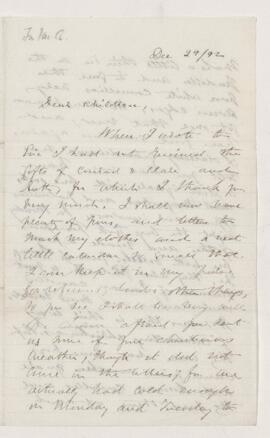 Dec 29/92
Dear children,
When I wrote to
you I had not received the
gifts of Conrad & Clare and
Ruth, for which I thank you
very much. I shall now have
plenty of pens, and letters to
mark my clothes and a neat
little calendar, so small that
I can keep it in my
for reference, besides other things,
so you see I shall be
afraid you sent
us some of your
weather, though it did not
come in the letters, for we
actually had cold enough
on Monday and Tuesday to